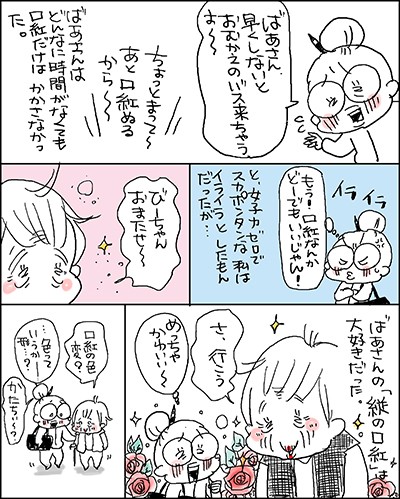 ばあさん
早くしないと
おむかえのバス来ちゃう
よ〜
ちょっとまって〜
あと口紅ぬる
から〜
ばあさんは
どんなに時間がなくても
口紅だけは かかさなかっ
た。
イラ
イラ
もう!口紅なんか
どーでもいいじゃん!
と、女子力ゼロで
スカポンタンな 私は
イライラと したもん
だったが…
びーちゃん
おまたせ〜
ばあさんの「縦の口紅」は
大好きだった。
さ、行こう
めっちゃ
かわいい〜
口紅の色
変?
…色って
いうか…
形…?
かたち〜?